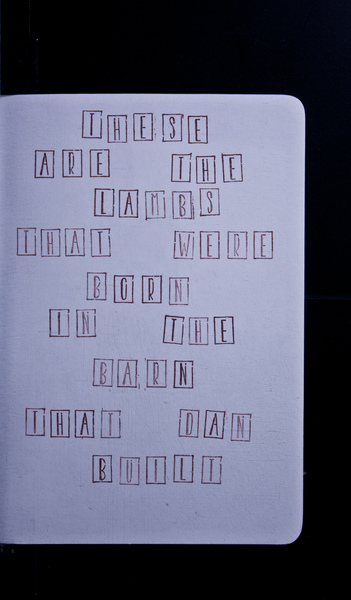 THESE
ARE THE
LAMBS
THAT WERE
BORN
IN THE
BARN
THAT DAN
BUILT